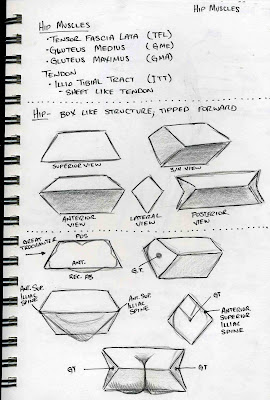 HIP MUSCLES
HIP MUSCLES
• TENSOR FASCIA LATA (TFL)
• GLUTEUS MEDIUS (GME)
• GLUTEUS MAXIMUS (GMA)
TENDON
• ILLIO TIBIAL TRACT (ITT)
- SHEET LIKE TENDON
HIP - BOX LIKE STRUCTURE, TIPPED FORWARD
SUPERIOR VIEW
3/4 VIEW
ANTERIOR VIEW
LATERAL VIEW
POSTERIOR VIEW
GREAT TROCHANTER
POS
ANT.
REC. AB
G.T.
ANT. SUP. ILLIAC SPINE
ANT. SUP. ILLIAC SPINE
GT
ANTERIOR SUPERIOR ILLIAC SPINE
GT
GT